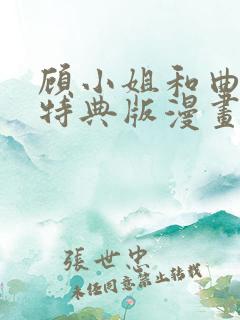 顾小姐和曲
特典版漫畫
張世忠
未經同意禁止轉載